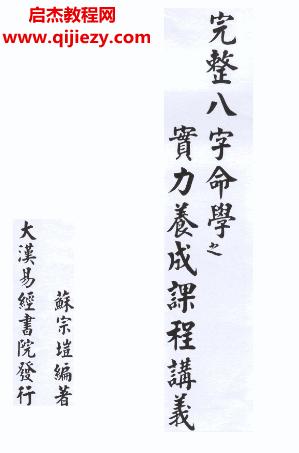 启杰教程网
www.qijiezy.com
完整八字命學之
實力養成課程講義
蘇宗塏編著
大漢易經書院發行